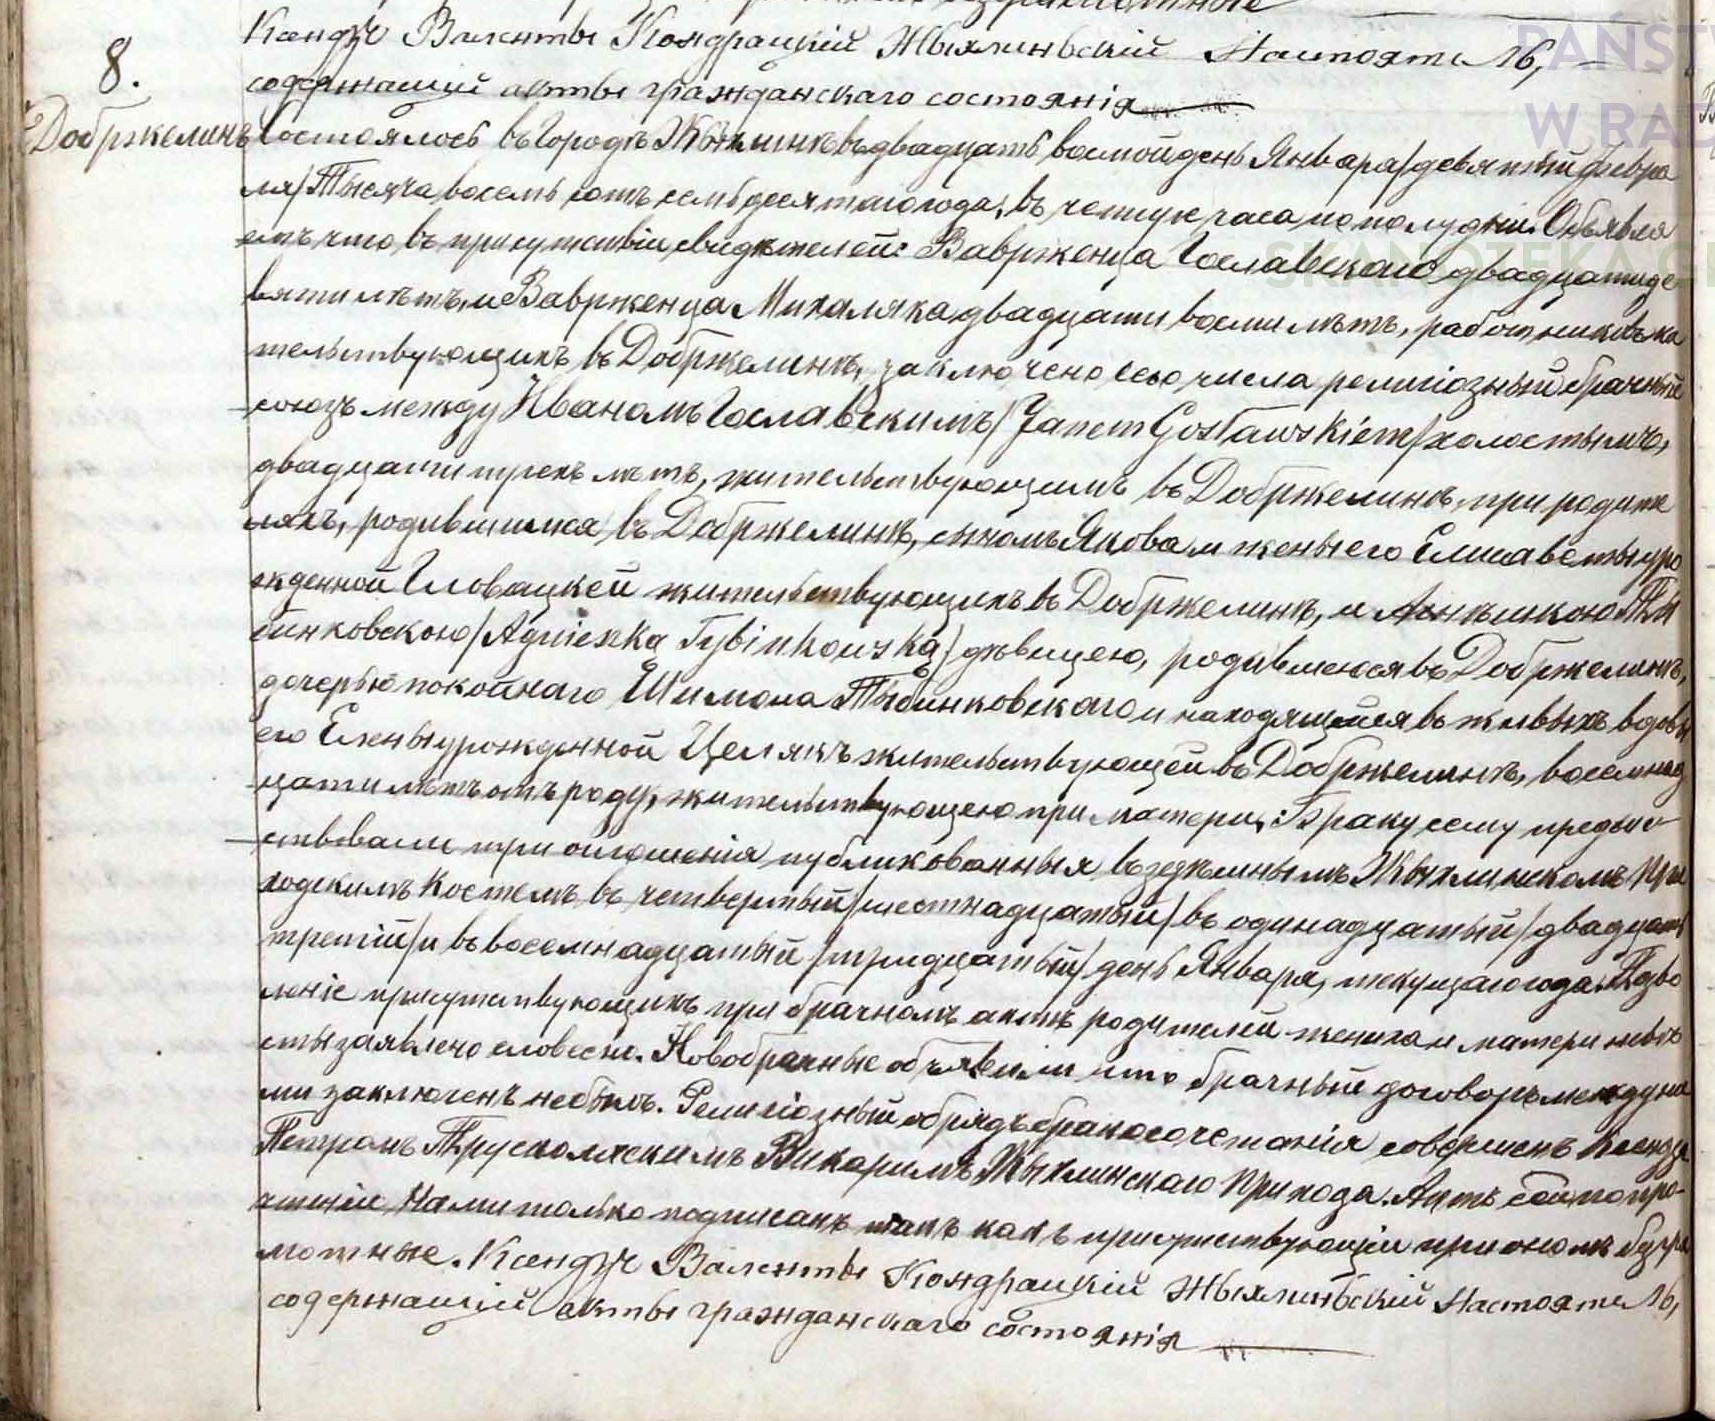 Ксендзъ Валенты Кондрацкій Жыхлиньскій Настоятель,
содержащій акты гражданскаго состоянія
8.
Добржелинъ
Состоялось въ Городѣ Жыхлинѣ въ двадцать восмой день Января/девятый Февра
ля/Тысяча восемь сотъ семьдесятаго года, въ четыре часа по полудни. Объявля
емъ что въ присутствіи свидѣтелей: Ваврженца Гославскаго двадцати де
вяти лѣтъ, и Ваврженца Михаляка двадцати восми лѣтъ, работниковъ жи
тельствующихъ въ Добржелинѣ, заключено сего числа религіозный брачный
союзъ между Иваномъ Гославскимъ/Janem Gosławskiém/холостымъ,
двадцати трехъ лѣтъ, жительствующимъ въ Добржелинѣ, при родите
ляхъ, родившимся въ Добржелинѣ, сыномъ Якова и жены его Елисаветы уро
жденной Гловацкей жительствующихъ въ Добржелинѣ, и Агнѣшкою Ты
бинковскою/Agnieszka Tybinkowską/дѣвицею, родившеюся въ Добржелинѣ,
дочерью покойнаго Шимона Тыбинковскаго и находящейся въ живыхъ вдовы
его Елены урожденной Целякъ жительствующей въ Добржелинѣ, восемнад
цати лѣтъ отъ роду, жительствующею при матери. Браку сему предше
ствовали три оглошенія публикованныя въ здѣшнымъ Жыхлинскомъ При
ходскимъ Костелѣ въ четвертый/шестнадцатый/въ одинадцатый/двадцать
третій/и въ восемнадцатый/тридцатый/день Января, текущаго года. Позво
леніе присутствующихъ при брачномъ актѣ родителей жениха и матери невѣ
сты заявлено словесно. Новобрачные объявили что брачный договоръ между ни
ми заключенъ небылъ. Религіозный обрядъ бракосочетанія совершенъ Ксендзѣ
Петромъ Трусколяскимъ Викаримъ Жыхлинскаго Прихода. Актъ сей по про-
чтеніи Нами только подписанъ такъ какъ присутствующіи при ономъ безгра
мотные. Ксендзъ Валенты Кондрацкій Жыхлиньскій Настоятель,
содержащій акты гражданскаго состоянія
PAŃSTW
W RAD
SKANOTEKA GE